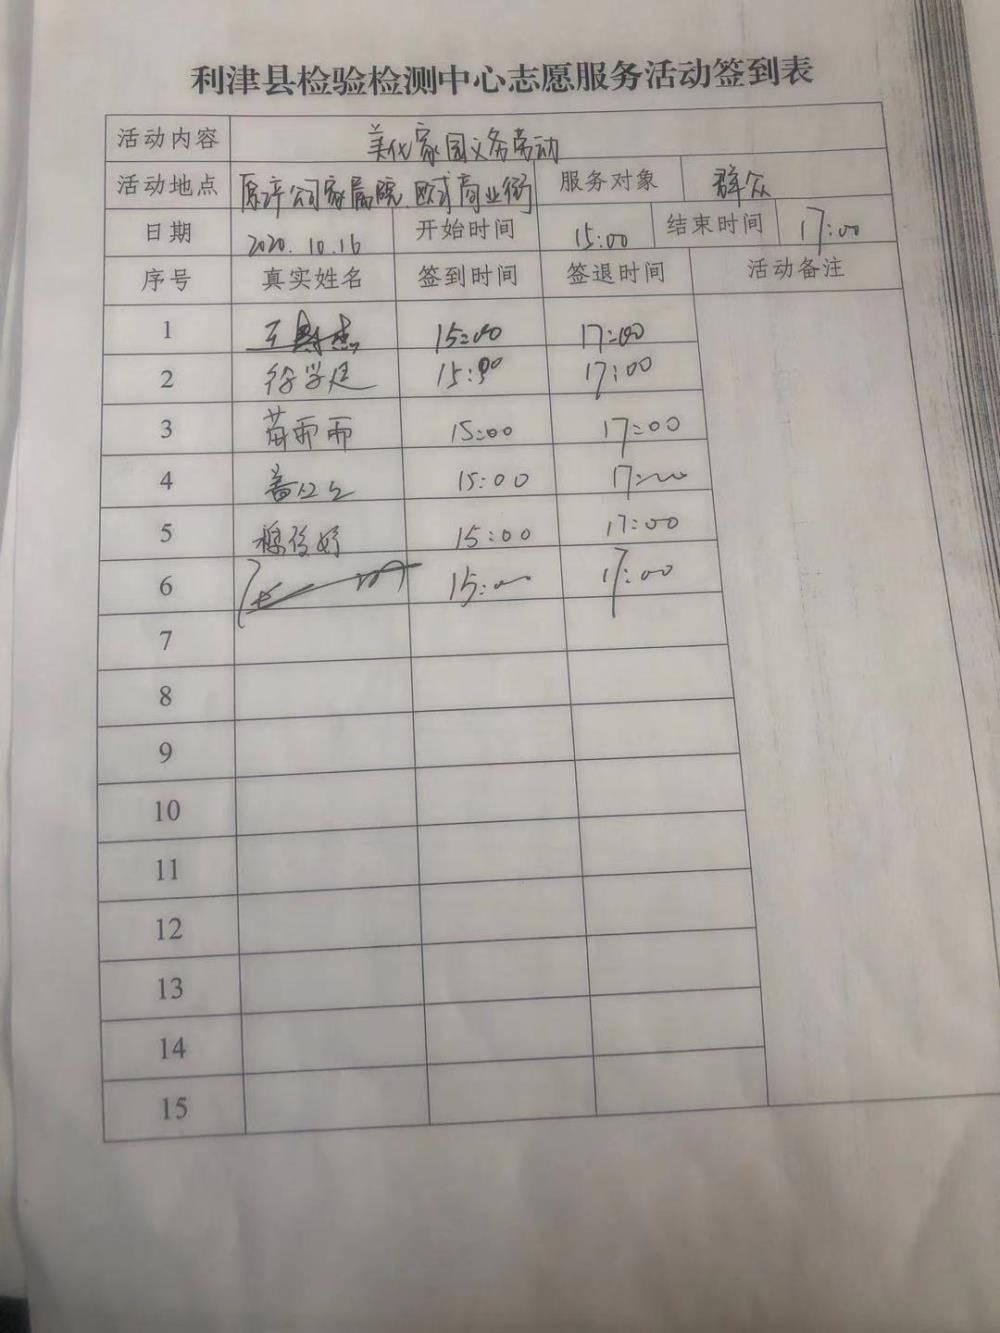 利津县检验检测中心志愿服务活动签到表
活动内容 美化家园义务劳动
活动地点 原许公司家属院 欧式商业街 服务对象 群众
日期 2020.10.16 开始时间 15:00 结束时间 17:00
序号 真实姓名 签到时间 签退时间 活动备注
1 15:00 17:00
2 15:00 17:00
3 苗雨雨 15:00 17:00
4 15:00 17:00
5 15:00 17:00
6 15:00 17:00
7
8
9
10
11
12
13
14
15